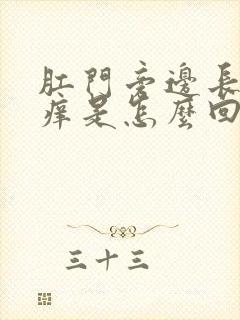 肛門旁邊長
痒是怎麼回
三十三